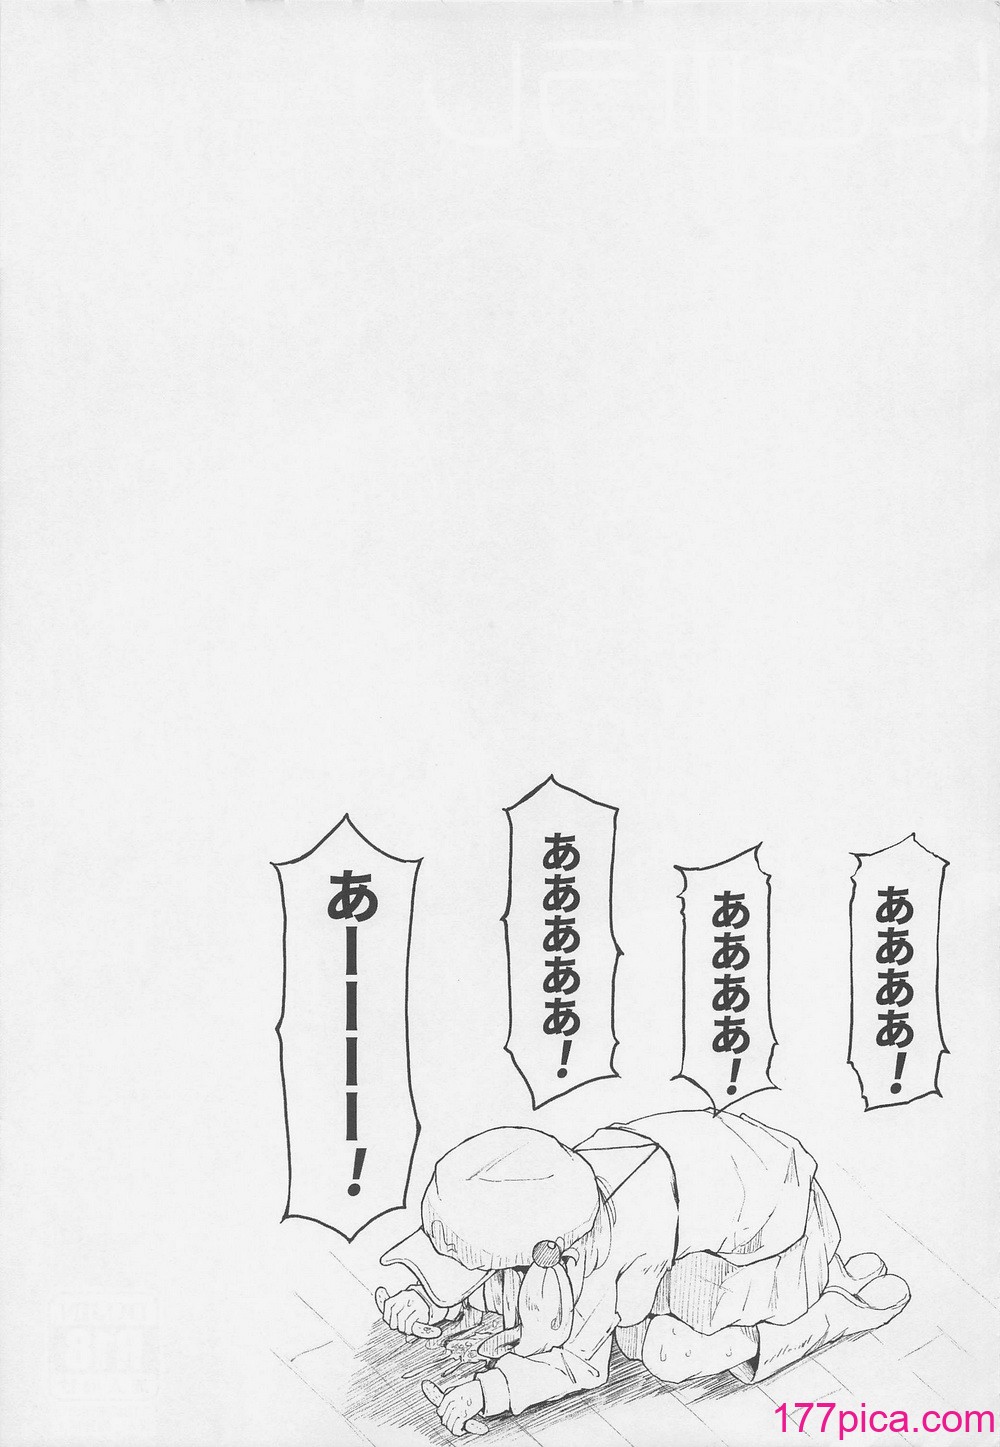 ああああ！
ああああ！
あああああ！
あーーーー！
177pica.com